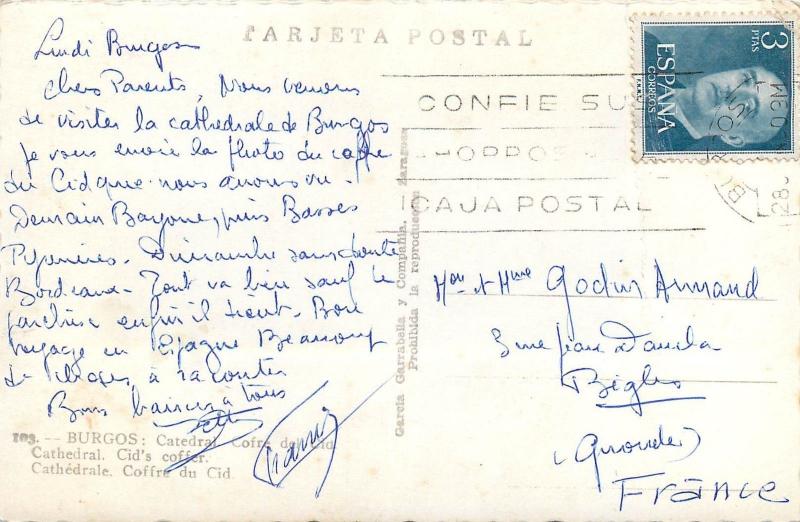 Lundi Burgos
Chers Parents, Nous venons
de visiter la cathédrale de Burgos
je vous envoie la photo du coffre
du Cid que nous avons vu.
Demain Bayonne, puis Basses
Pyrénées. Dimanche sans doute
Bordeaux. Tout va bien sauf le
enfin il tient. Bon
voyage en Espagne Beaucoup
de choses à raconter
Bons baisers à tous
103. -- BURGOS: Catedral. Cofre del Cid
Cathedral. Cid's coffer.
Cathédrale. Coffre du Cid
Garcia Garrabella y Compañia. Zaragoza
Prohibida la reproducción
TARJETA POSTAL
CONFIE SUS
AHORROS
CAJA POSTAL
3 PTAS
ESPAÑA
CORREOS
Mr et Mme Godin Armand
3 rue
Bègles
(Gironde)
France